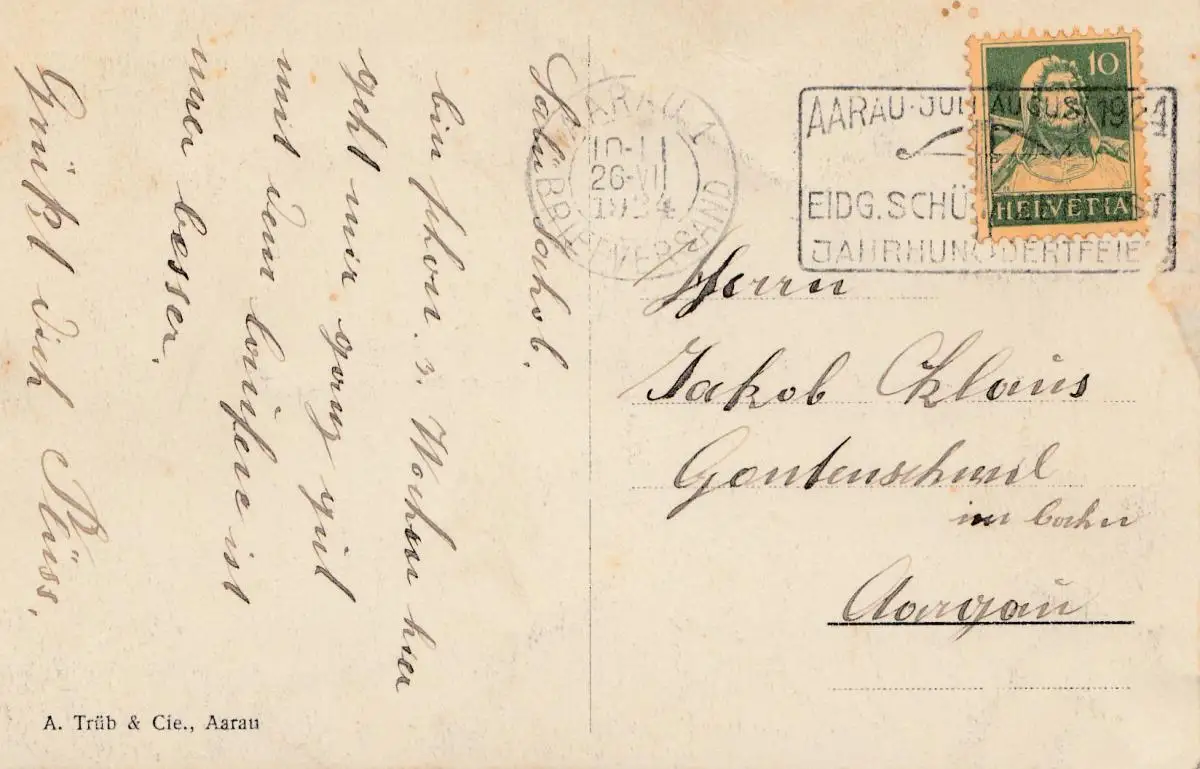 Salu Jakob.
bin schon 3. Wochen hier
geht mir ganz gut
mit dem laufen ist
imer besser.
Grüßt dich Plüss.
A. Trüb & Cie., Aarau
AARAU 1
10-11
26·VII
1924
BRIEFVERSAND
AARAU·JULI AUGUST 1924
EIDG. SCHÜ
JAHRHUNDERTFEIE
10
HELVETIA
Herrn
Jakob Klaus
Gontenschwil
Aargau